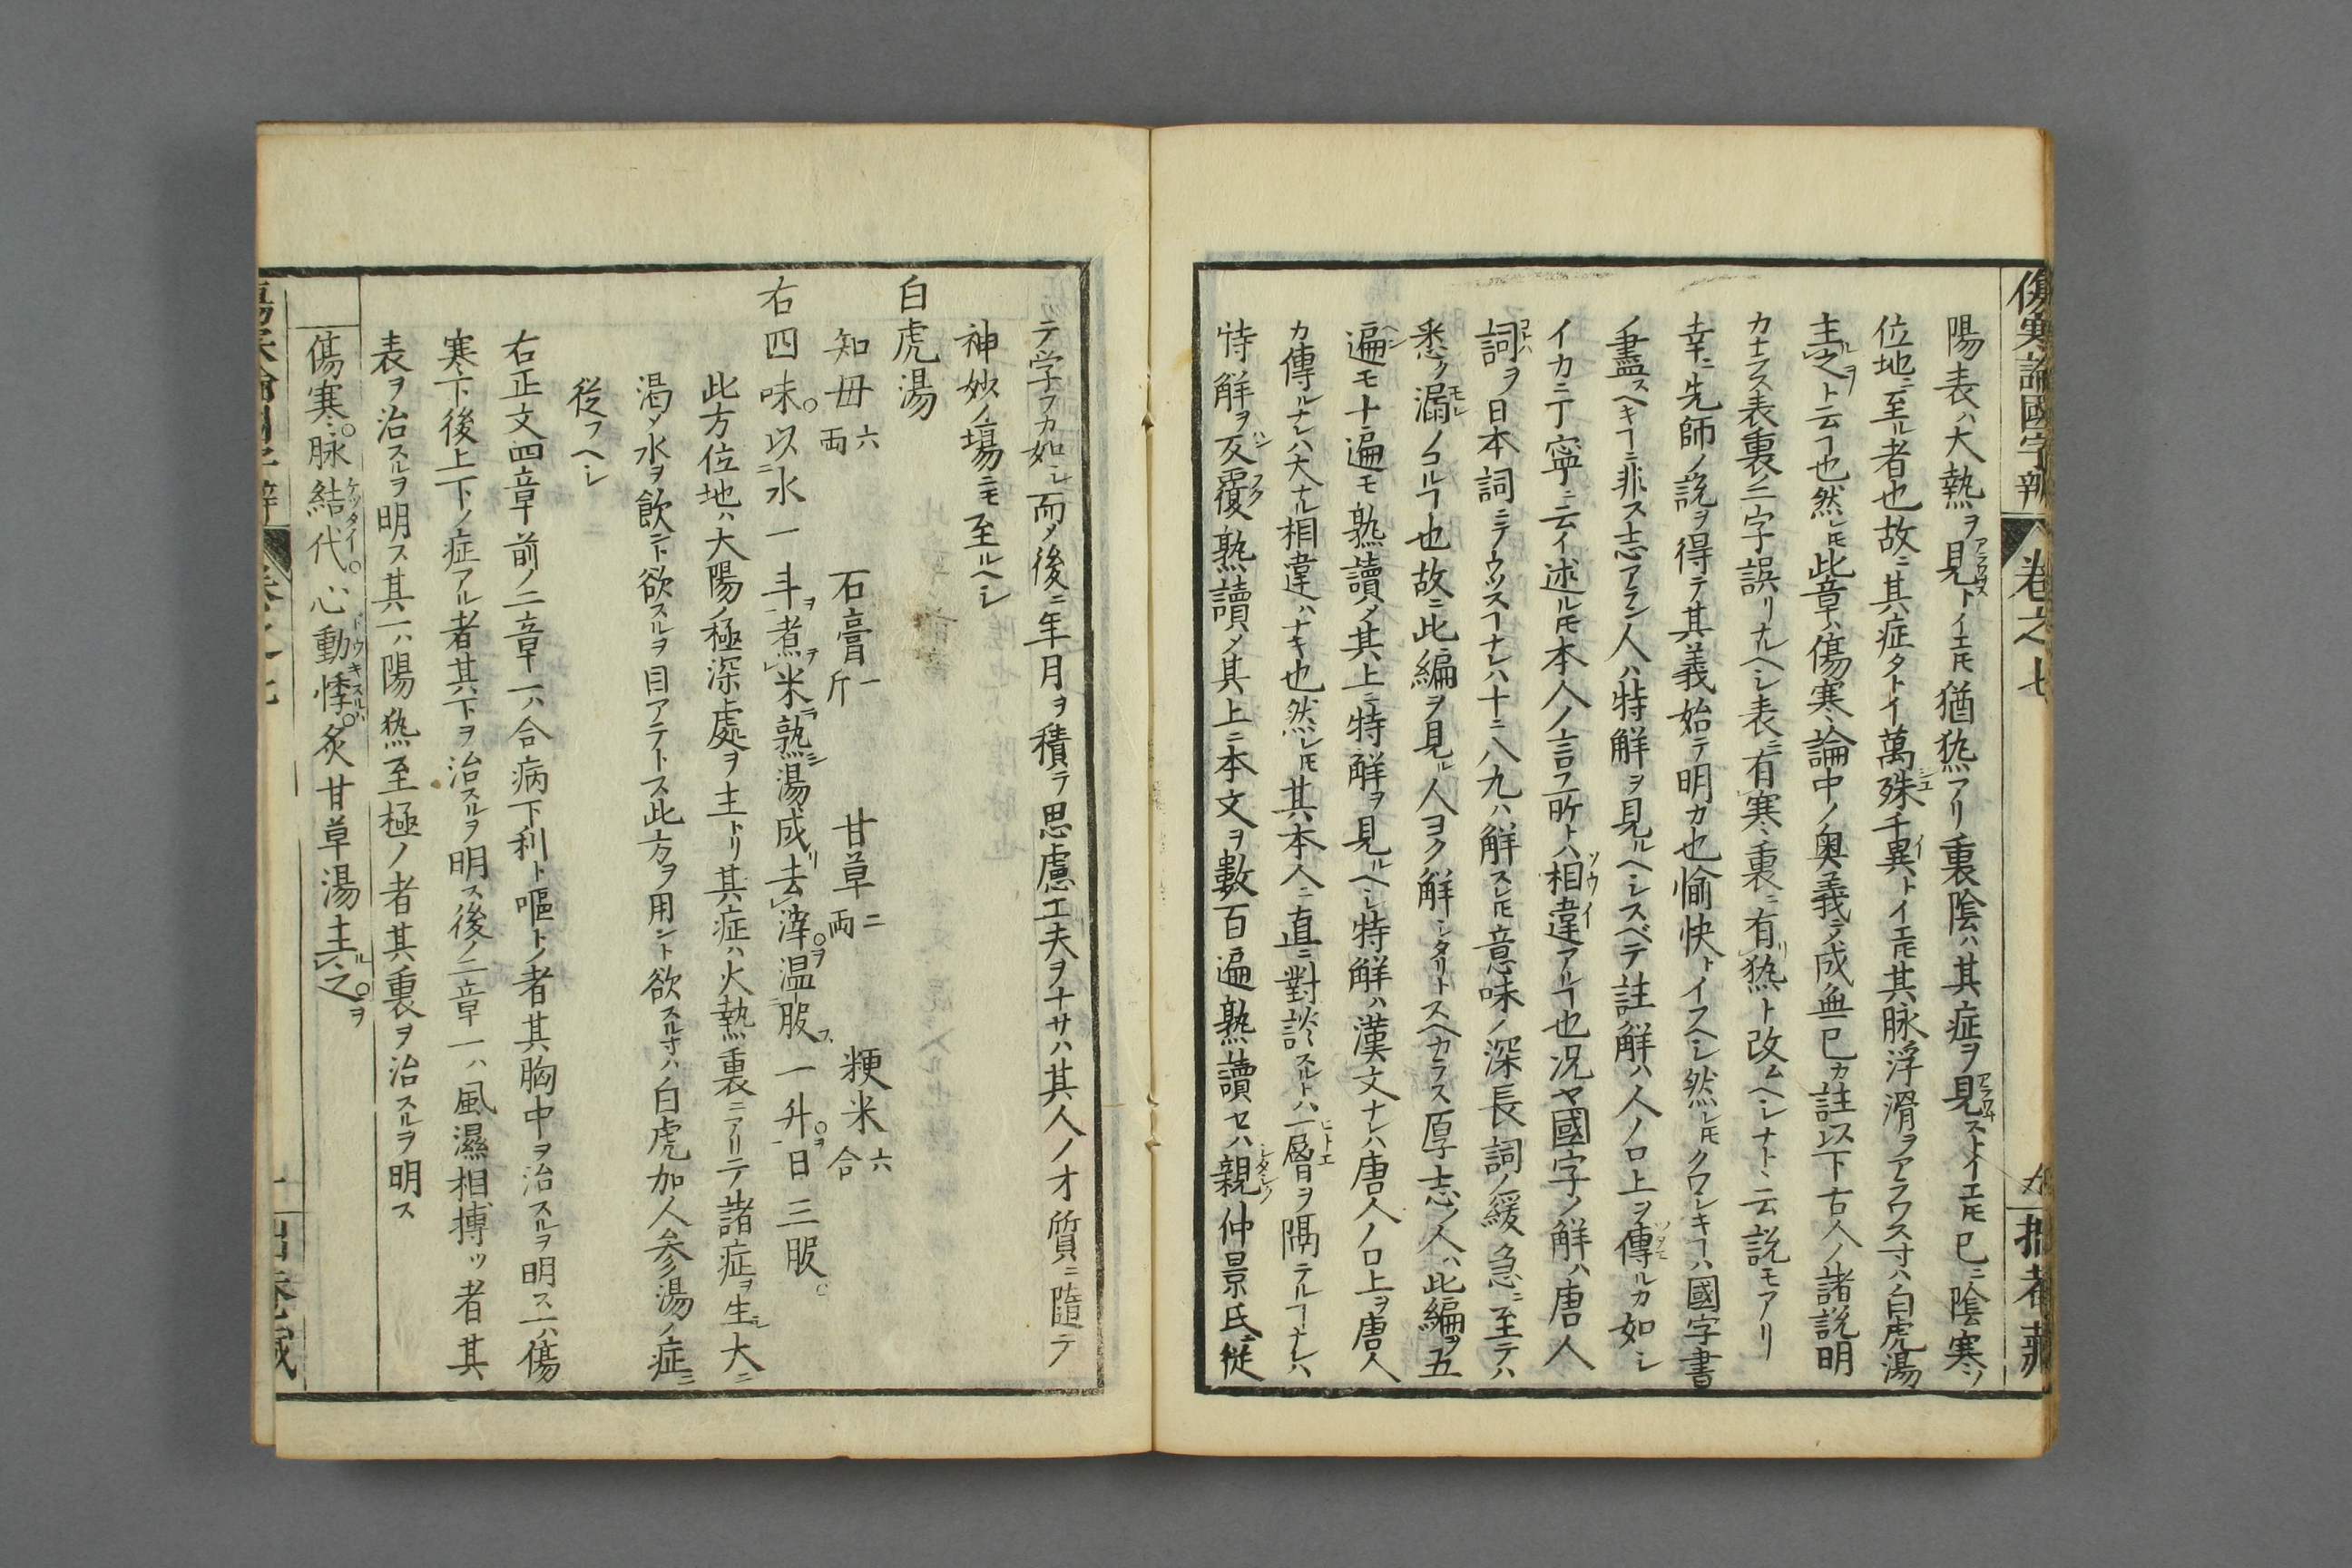 傷寒論國字辨 卷之七
陽表ハ大熱ヲ見トイエ𪜈猶𤍠アリ裏陰ハ其症ヲ見ストイエ𪜈已ニ陰寒ノ
位地ニ至ル者也故ニ其症タトイ萬殊千異トイエ𪜈其脉浮滑ヲアラワス寸ハ白虎湯
主之ト云ヿ也然レ𪜈此章ハ傷寒論中ノ奥義ニメ成無已カ註以下古人ノ諸説明
カナラス表裏二字誤リナルヘシ表ニ有寒裏ニ有𤍠ト改ムヘシナト云説モアリ
幸ニ先師ノ説ヲ得テ其義始テ明カ也愉快トイフヘシ然レ𪜈クワシキヿハ國字書
ノ盡スヘキヿニ非ス志アラン人ハ特解ヲ見ルヘシスベテ註解ハ人ノ口上ヲ傳ルカ如シ
イカニ丁寧ニ云イ述ル𪜈本人ノ言フ所トハ相違アルヿ也况ヤ國字ノ解ハ唐人
詞ヲ日本詞ニテウツスヿナレハ十ニ八九ハ解スレ𪜈意味ノ深長詞ノ緩急ニ至テハ
悉ク漏ノコルヿ也故ニ此編ヲ見ル人ヨク解シタリトスヘカラス厚志ノ人ハ此編ヲ五
遍モ十遍モ熟讀メ其上ニ特解ヲ見ルヘシ特解ハ漢文ナレハ唐人ノ口上ヲ唐人
カ傳ルナレハ大ナル相違ハナキ也然レ𪜈其本人ニ直ニ對談スルトハ一層ヲ隔テルヿナレハ
特解ヲ反覆熟讀メ其上ニ本文ヲ數百遍熟讀セハ親仲景氏ニ從
テ学フカ如シ而メ後ニ年月ヲ積テ思慮工夫ヲナサハ其人ノオ質ニ隨テ
神妙ノ塲ニモ至ルヘシ
白虎湯
知母六両 石膏一斤 甘草二両 粳米六合
右四味。以水一斗ヲ煮テ米熟シ湯成リ去滓ヲ。温服ス一升ヲ。日三服。
此方位地ハ大陽ノ極深處ヲ主トリ其症ハ火熱裏ニアリテ諸症ヲ生シ大ニ
渇メ水ヲ飲ント欲スルヲ目アテトス此方ヲ用ント欲スル寸ハ白虎加人参湯ノ症ニ
從フヘシ
右正文四章前ノ二章一ハ合病下利ト嘔トノ者其胸中ヲ治スルヲ明ス一ハ傷
寒下後上下ノ症アル者其下ヲ治スルヲ明ス後ノ二章一ハ風濕相摶ツ者其
表ヲ治スルヲ明ス其一ハ陽𤍠至極ノ者其裏ヲ治スルヲ明ス
傷寒。脉結代。心動悸。炙甘草湯主之。